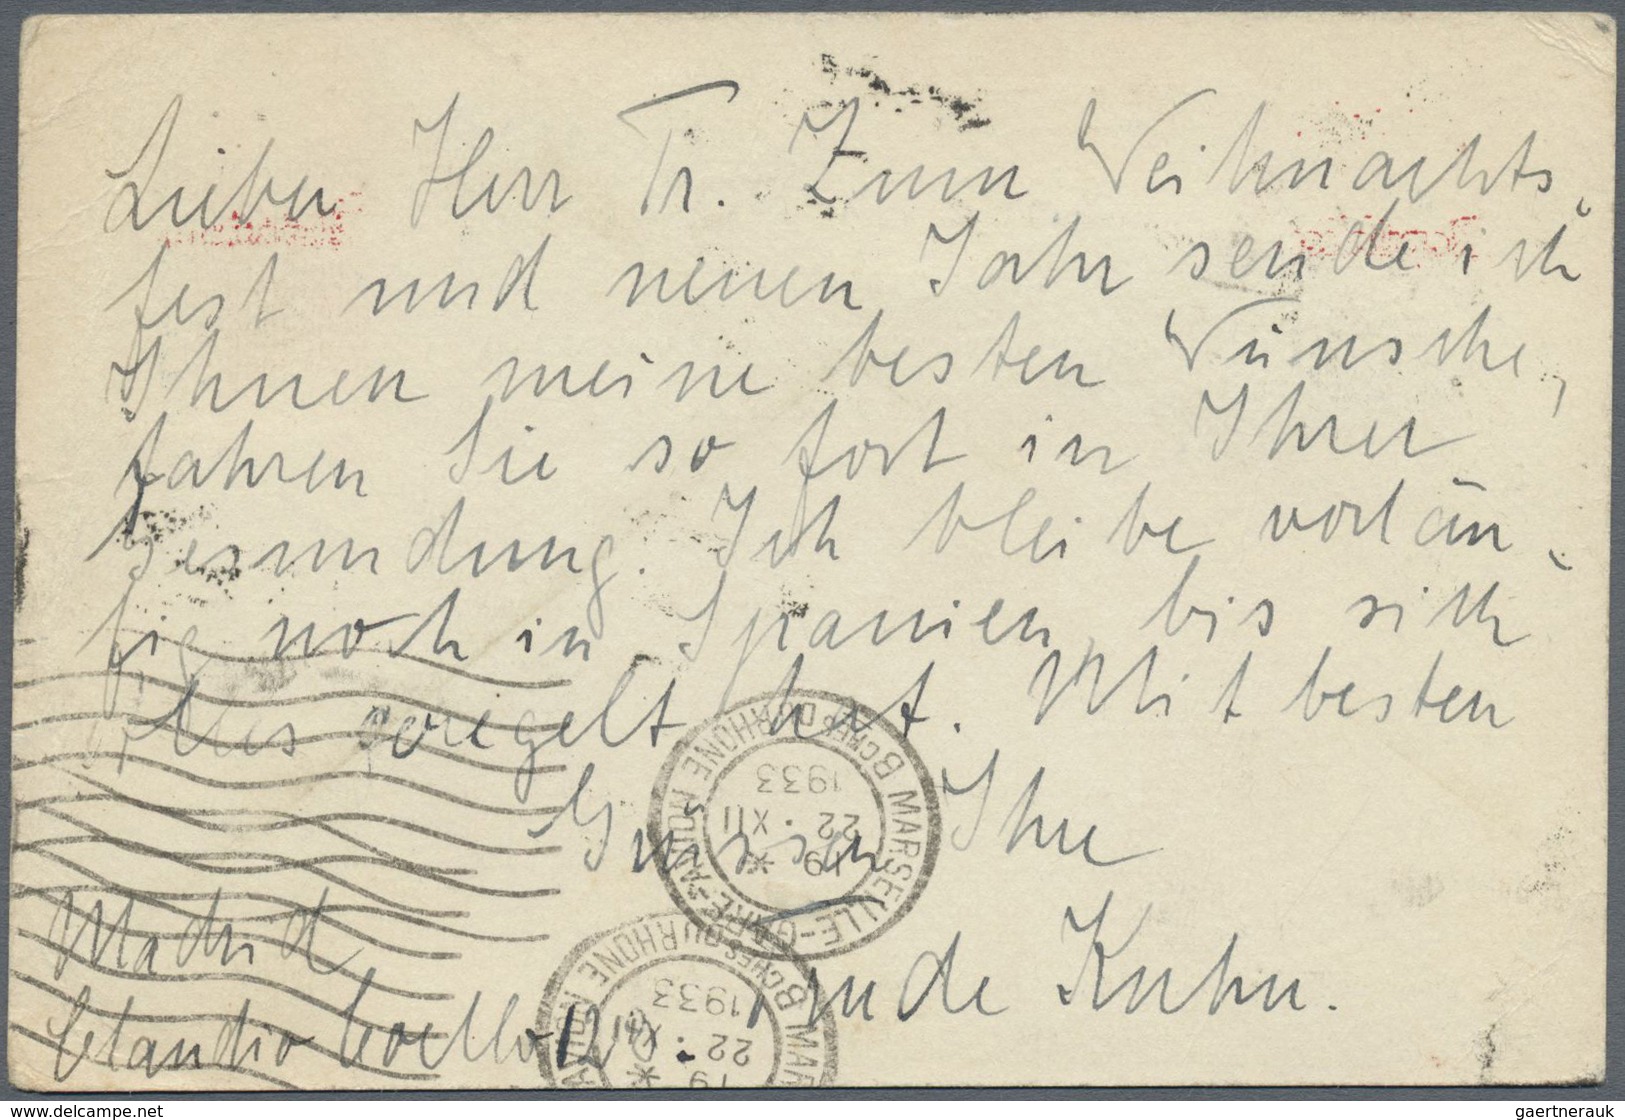 Lieber Herr Tr. Zum Weihnachts-
fest und neuen Jahr sende ich
Ihnen meine besten Wünsche,
fahren Sie so fort in Ihrer
Gesundung. Ich bleibe vorläu-
fig noch in Spanien, bis sich
Alles geregelt hat. Mit besten
Grüssen Ihre
Trude Kuhn.
Madrid
Claudio Coello
MARSEILLE-GARE
BCHES DU RHONE
19
22 · XII
1933
MAR
BCHES DU RHONE
19
22 · XII
1933
gaertnerauk